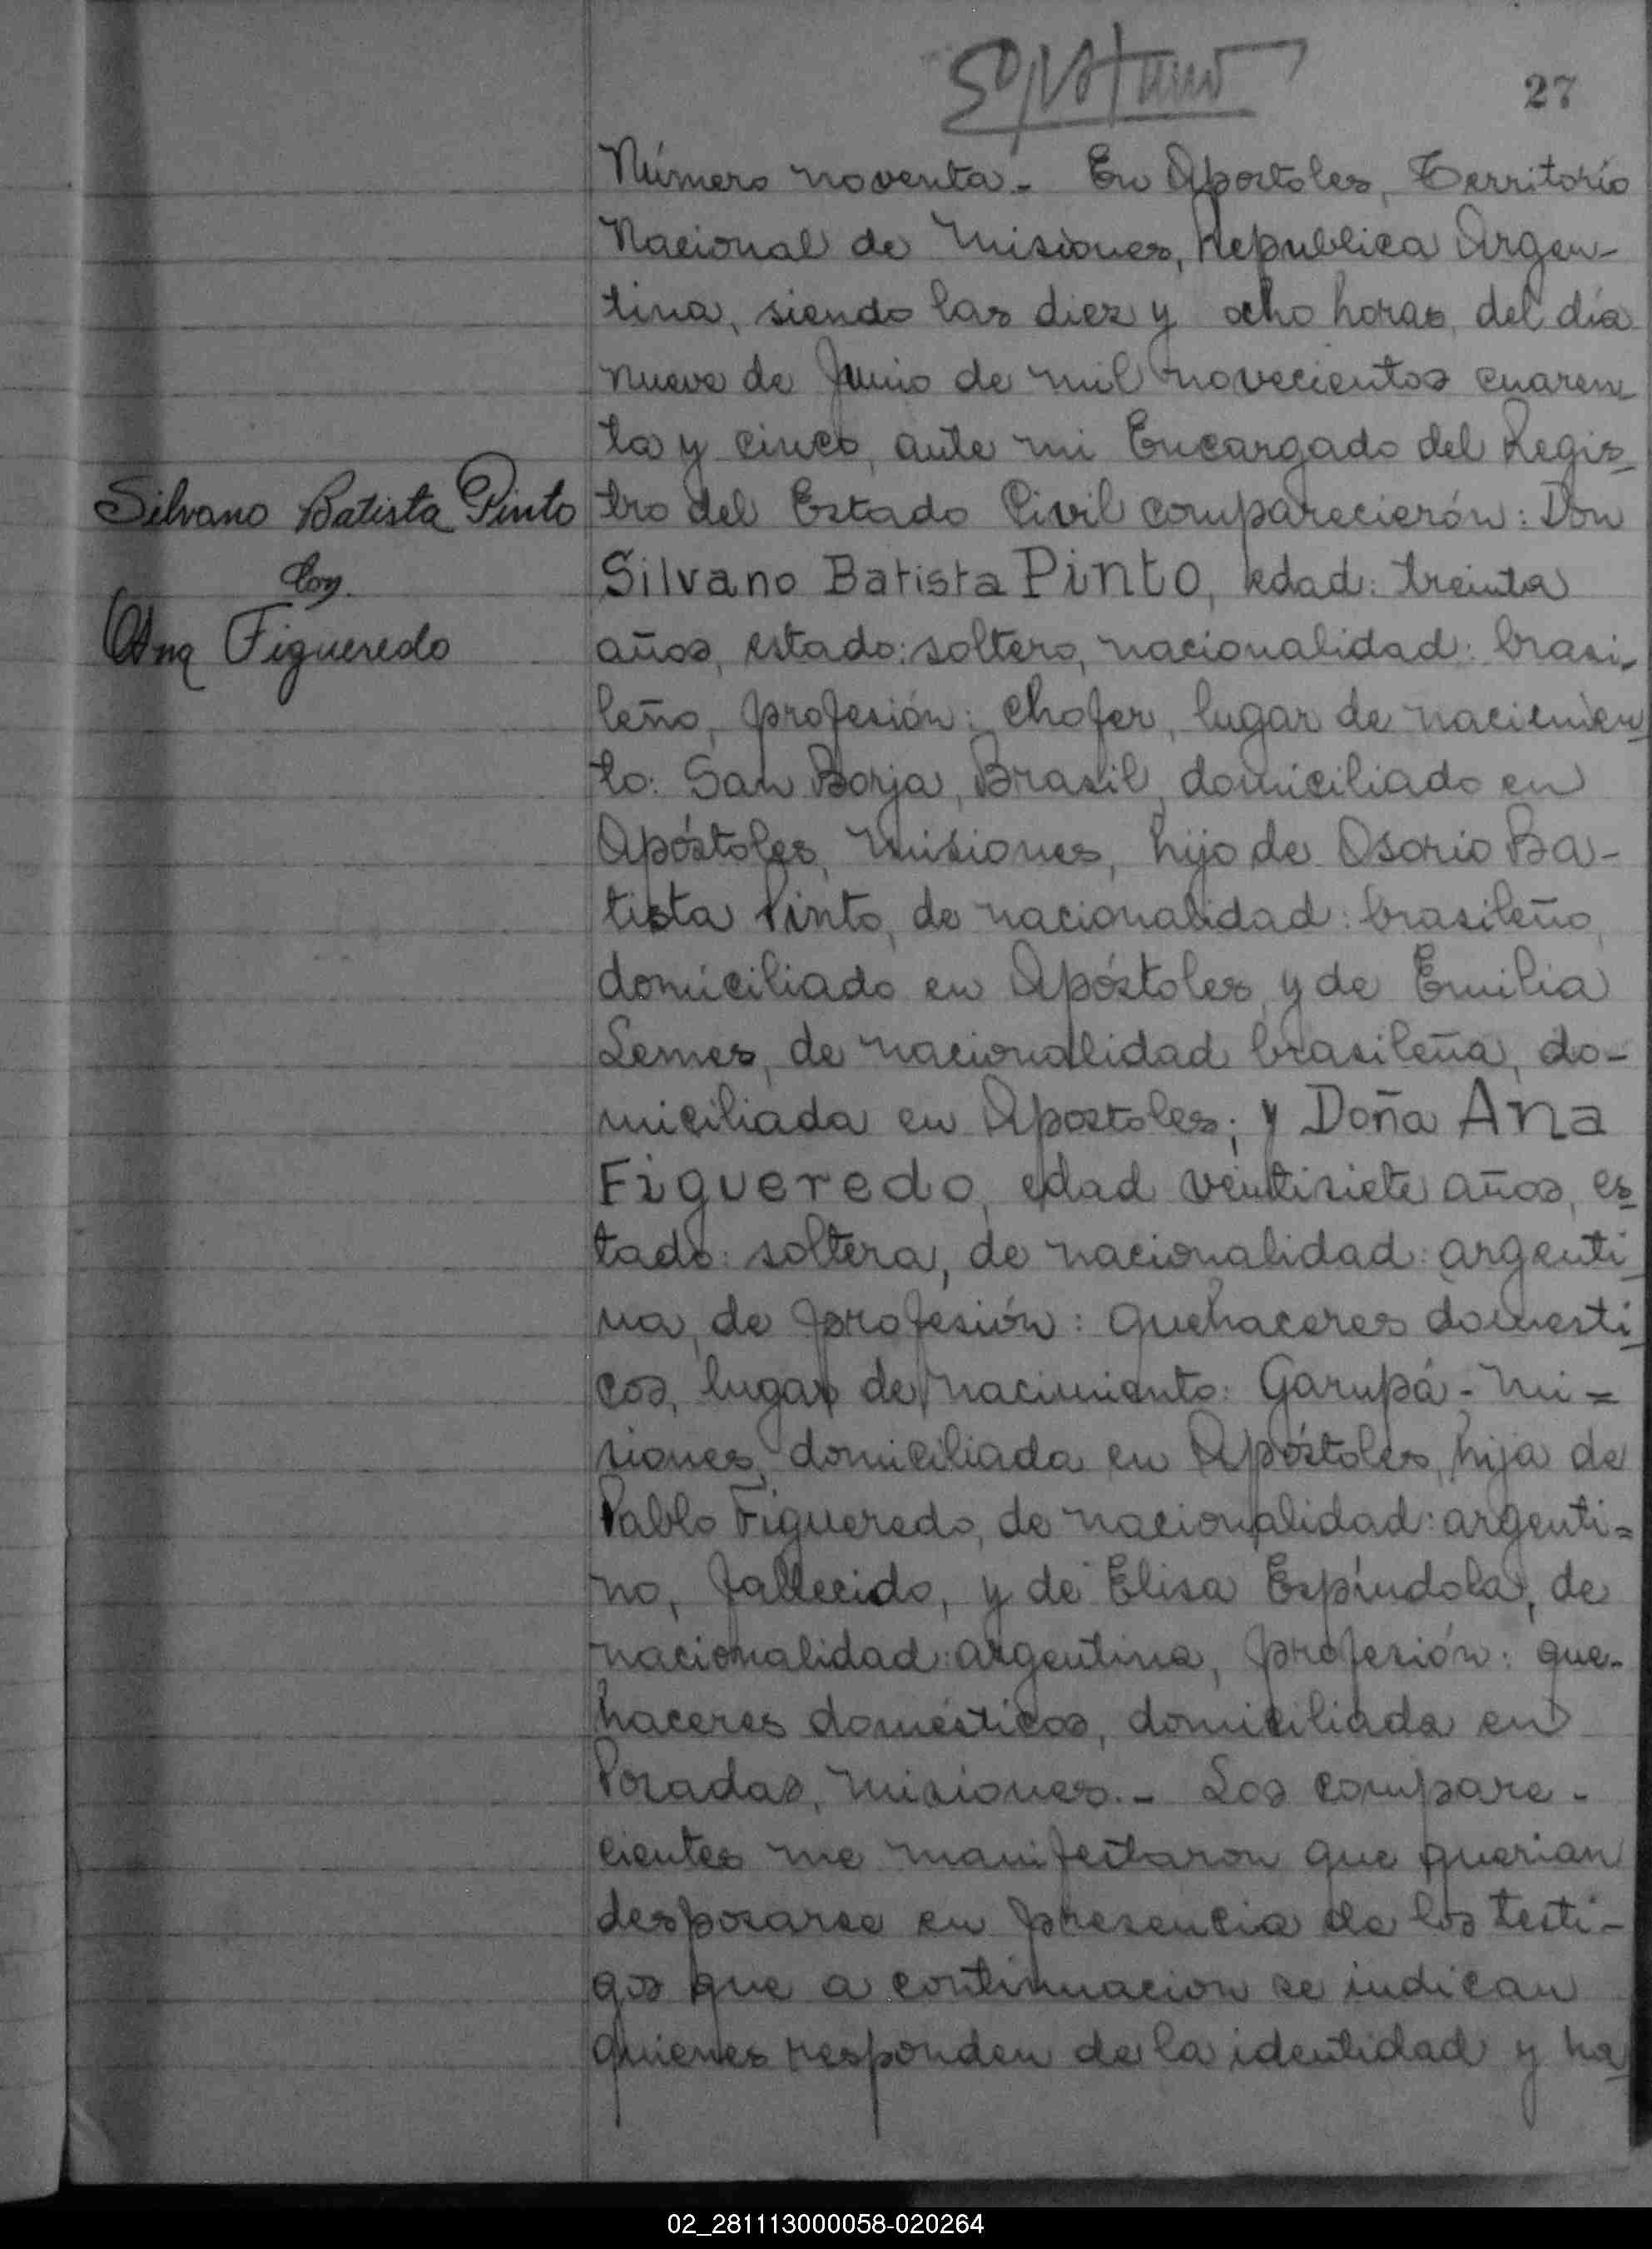 27
Número noventa.- En Apostoles, Territorio
Nacional de Misiones, Republica Argen-
tina, siendo las diez y ocho horas, del día
nueve de Junio de mil novecientos cuaren-
ta y cinco, ante mi Encargado del Regis-
Silvano Batista Pinto
con
Ana Figueredo
tro del Estado Civil comparecierón: Don
Silvano Batista Pinto, edad: treinta
años, estado: soltero, nacionalidad: brasi-
leño, profesión: chofer, lugar de nacimien-
to: San Borja, Brasil, domiciliado en
Apóstoles, Misiones, hijo de Osorio Ba-
tista Pinto, de nacionalidad: brasileño,
domiciliado en Apóstoles, y de Emilia
Lemes, de nacionalidad brasileña, do-
miciliada en Apostoles; y Doña Ana
Figueredo, edad ventisiete años, es-
tado: soltera, de nacionalidad: argenti-
na, de profesión: quehaceres domesti-
cos, lugar de nacimiento: Garupá - Mi=
siones, domiciliada en Apóstoles, hija de
Pablo Figueredo, de nacionalidad: argenti=
no, fallecido, y de Elisa Espíndola, de
nacionalidad: argentina, profesión: que-
haceres domésticos, domiciliada en
Posadas, Misiones.- Los compare-
cientes me manifestaron que querian
desposarse en presencia de los testi-
gos que a continuacion se indican
quienes responden de la identidad y ha-
02_281113000058-020264